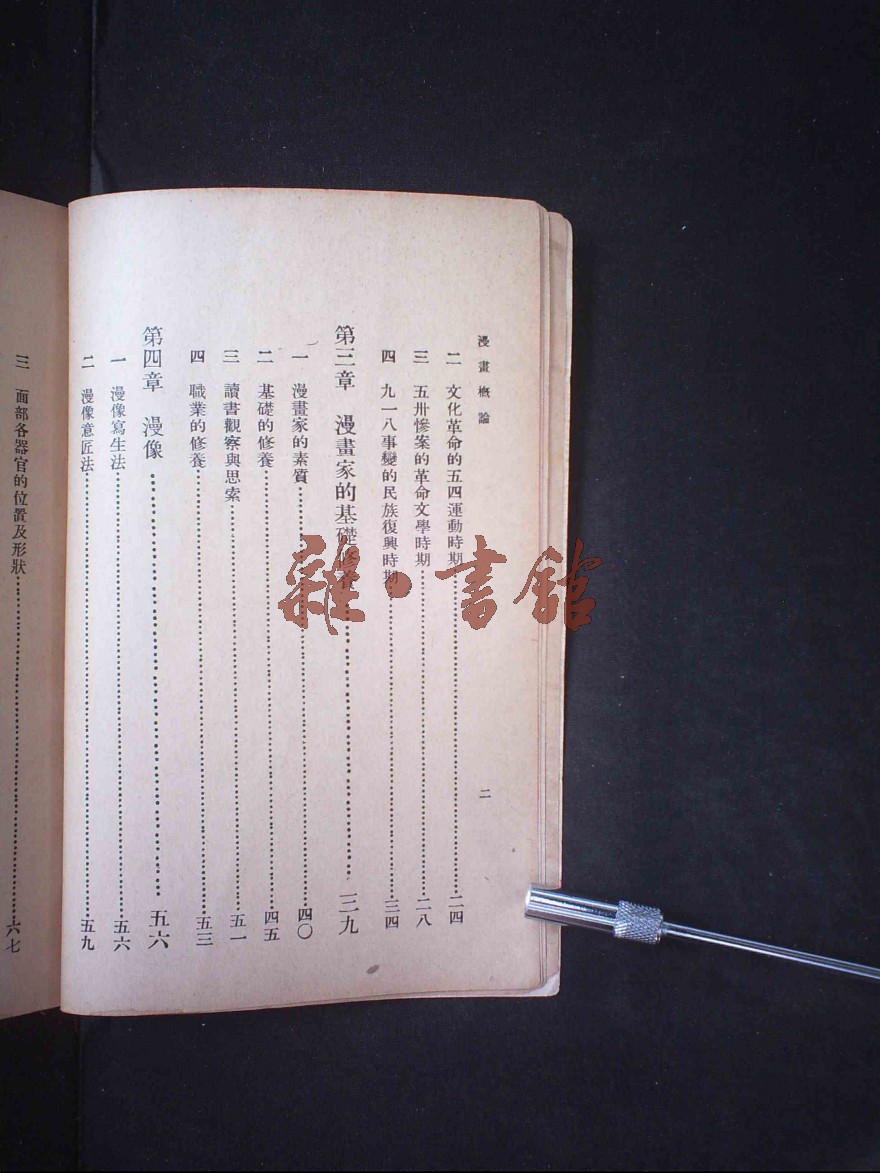 漫畫概論
二
二 文化革命的五四運動時期……二四
三 五卅慘案的革命文學時期……二八
四 九一八事變的民族復興時期……三四
第三章 漫畫家的基礎修養……三九
一 漫畫家的素質……四〇
二 基礎的修養……四五
三 讀書觀察與思索……五一
四 職業的修養……五三
第四章 漫像……五六
一 漫像寫生法……五六
二 漫像意匠法……五九
三 面部各器官的位置及形狀……六七
雜·書館